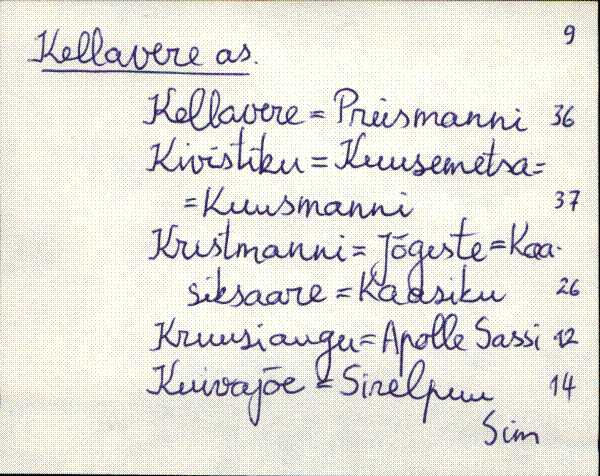 9
Kellavere as.
Kellavere = Priismanni 36
Kivistiku = Kuusemetsa =
= Kuusmanni 37
Kristmanni = Jõgeste = Kaa-
siksaare = Kaasiku 26
Kruusiaugu = Apolle Sassi 12
Kuivajõe = Sirelpuu 14
Sim